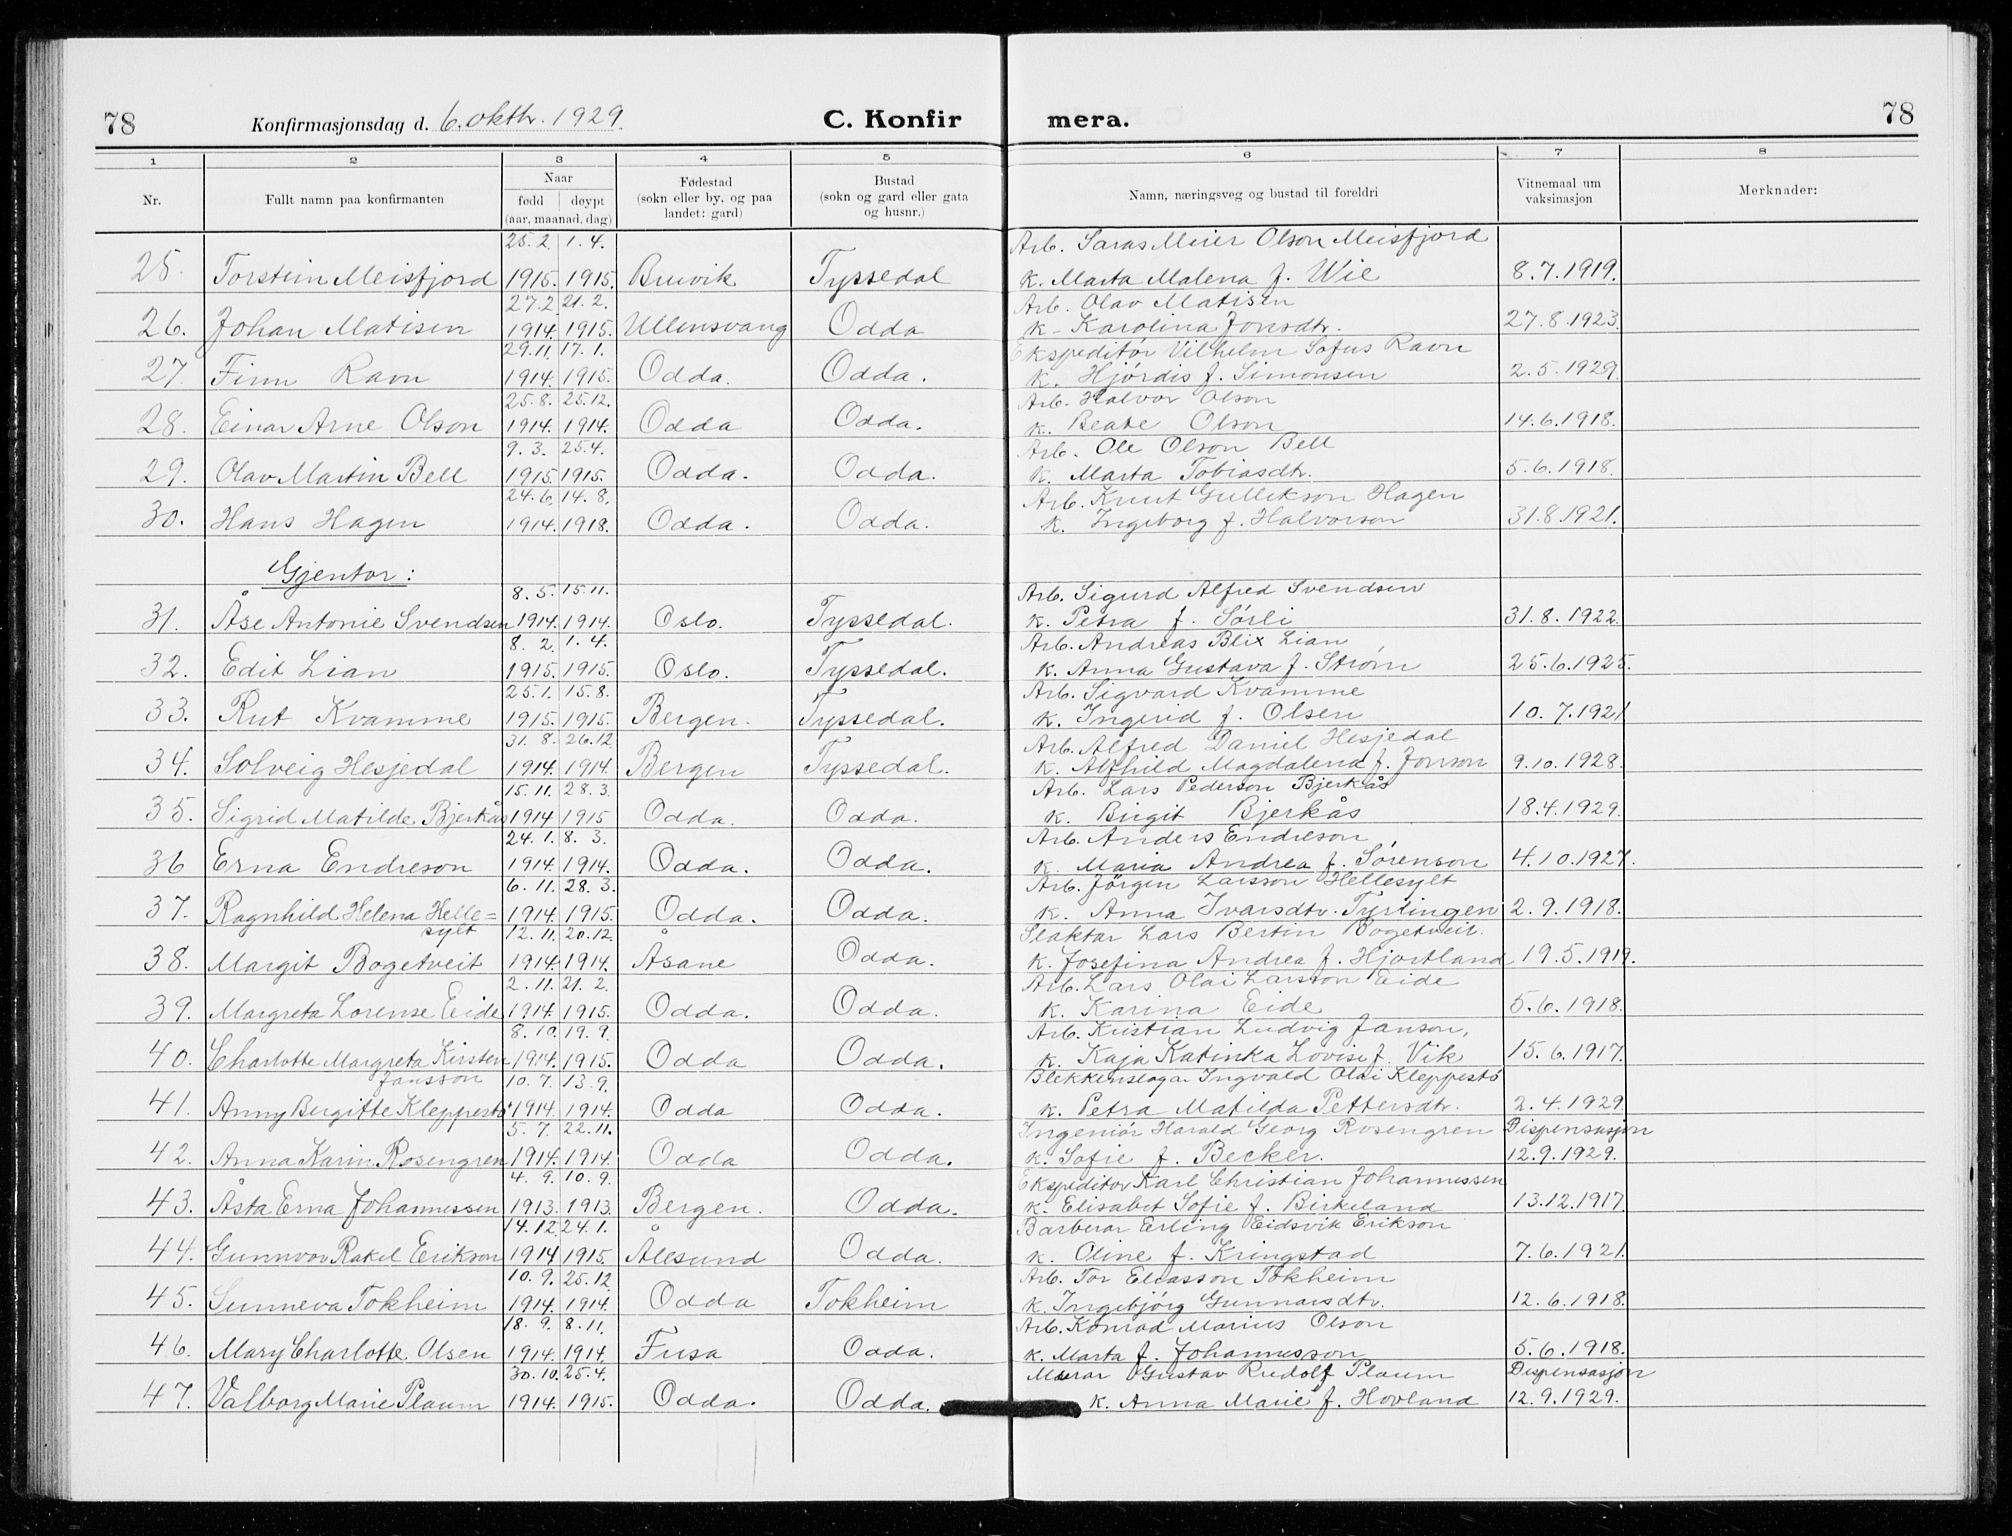 78 Konfirmasjonsdag d. 6. oktbr. 1929. C. Konfir mera. 78
1 2 3 4 5 6 7 8
Nr. Fullt namn paa konfirmanten Naar født døypt (aar, maanad, dag) Fødestad (sokn eller by, og paa landet: gard) Bustad (sokn og gard eller gata og husnr.) Namn, næringsveg og bustad til foreldri Vitnemaal um vaksinasjon Merknader:
25. 2. 1. 4. Arb. Saras Meier Olson Meisfjord
25. Torstein Meisfjord 1915. 1915. Bruvik Tyssedal k. Marta Malena f. Wie 8.7.1919.
27.2. 21.2. Arb. Olav Matisen
26. Johan Matisen 1914. 1915. Ullensvang Odda k. Karolina Jonsdtr. 27.8.1923.
29.11. 17.1. Ekspeditör Vilhelm Sofus Ravn
27. Finn Ravn 1914. 1915. Odda. Odda. k. Hjördis f. Simonsen 2.5.1929.
25.8. 25.12. Arb. Halvor Olson
28. Einar Arne Olson 1914. 1914. Odda Odda. k. Beate Olson 14.6.1918.
9. 3. 25.4. Arb. Ole Olson Bell
29. Olav Martin Bell 1915. 1915. Odda. Odda. k. Marta Tobiasdtr. 5.6.1918.
24.6. 14.8. Arb. Knut Gullikson Hagen
30. Hans Hagen 1914. 1918. Odda. Odda. k. Ingeborg f. Halvorson 31.8.1921.
Gjentor:
8. 5. 15.11. Arb. Sigurd Alfred Svendsen
31. Åse Antonie Svendsen 1914. 1914. Oslo. Tyssedal. k. Petra f. Sørli 31.8.1922.
8. 2. 1. 4. Arb. Andreas Blix Lian
32. Edit Lian 1915. 1915. Oslo. Tyssedal. k. Anna Gustava f. Strøm 25.6.1925.
25.1. 15.8. Arb. Sigvard Kvamme
33. Rut Kvamme 1915. 1915. Bergen. Tyssedal. k. Ingerid f. Olsen 10.7.1921
31. 8. 26.12. Arb. Alfred Daniel Hesjedal
34. Solveig Hesjedal 1914. 1914. Bergen Tyssedal. k. Alfhild Magdalena f. Jonson 9.10.1928.
15.11. 28.3. Arb. Lars Pederson Bjerkås
35. Sigrid Matilde Bjerkås 1914 1915 Odda. Odda. k. Birgit Bjerkås 18.4.1929.
24.1. 8. 3. Arb. Anders Endreson
36 Erna Endreson 1914. 1914. Odda. Odda. k. Maria Andrea f. Sørenson 4.10.1927.
6. 11. 28. 3. Arb. Jörgen Larsson Hellesylt
37. Ragnhild Helena Helle= 1914. 1915. Odda. Odda. k. Anna Ivarsdtr. Tyrlingen 2.9.1918.
sylt 12.11. 20.12. Slaktar Lars Bertin Bogetveit.
38. Margit Bogetveit 1914. 1914. Åsane Odda. k. Josefina Andrea f. Hjortland 19.5.1919.
2.11. 21. 2. Arb. Lars Olai Larsson Eide
39. Margreta Lorense Eide 1914. 1915. Odda. Odda. k. Karina Eide 5.6.1918.
8.10. 19.9. Arb. Kristian Ludvig Janson,
40. Charlotte Margreta Kirsten 1914. 1915. Odda Odda. k. Kaja Katinka Lovise f. Vik 15.6.1917.
Jansson 10. 7. 13.9. Blekkenslagar Ingvald Olai Kleppestö
41. Anny Bergitte Kleppestö 1914. 1914. Odda Odda. k. Petra Matilda Pettersdtr. 2.4.1929.
5. 7. 22.11. Ingeniör Harald Georg Rosengren Dispensasjon
42. Anna Karin Rosengren 1914. 1914. Odda Odda. k. Sofie f. Becker. 12.9.1929.
4. 9. 10.9. Ekspeditor Karl Christian Johannessen
43. Åsta Erna Johannessen 1913. 1913. Bergen. Odda. k. Elisabet Sofie f. Birkeland 13.12.1917.
14.12. 24.1. Barberar Erling Eidsvik Erikson
44. Gunnvor Rakel Erikson 1914 1915. Ålesund Odda. k. Oline f. Kringstad 7.6.1921.
10. 9. 25.12. Arb. Tor Eliasson Tokheim
45. Sunneva Tokheim 1914. 1914. Odda Tokheim k. Ingebjörg Gunnarsdtr. 12.6.1918.
18. 9. 8.11. Arb. Konrad Marius Olson
46. Mary Charlotte Olsen 1914. 1914. Fusa Odda. k. Marta f. Johannesson 5.6.1918.
30.10. 25.4. Murar Gustav Rudolf Plaum Dispensasjon
47. Valborg Marie Plaum 1914. 1915. Odda. Odda. k. Anna Marie f. Hovland 12.9.1929.